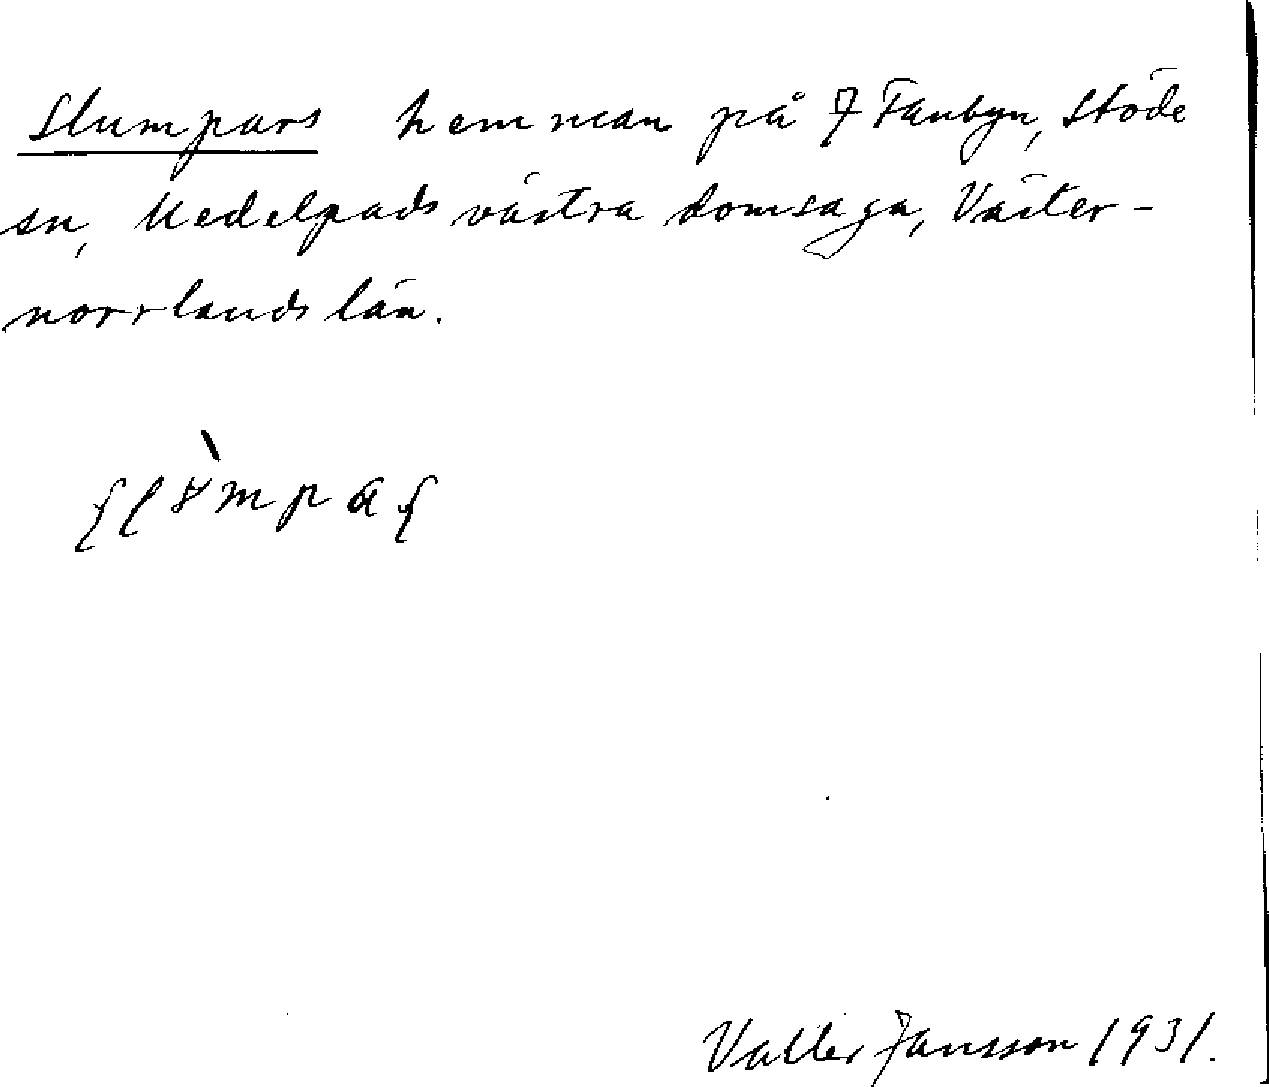 Slumpars hemman på 7 Fanbyn, Stöde
sn, Medelpads västra domsaga, Väster-
norrlands län.
Valter Jansson 1931.